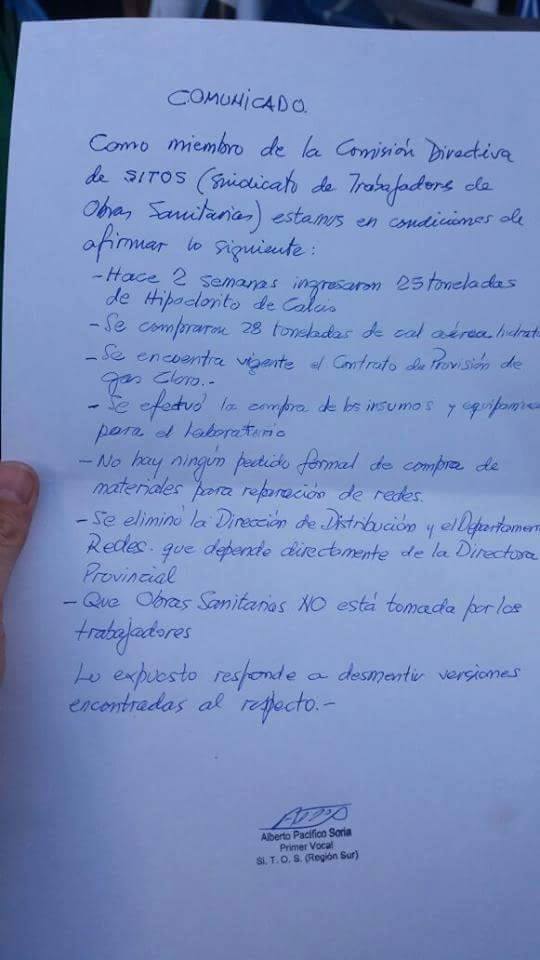 COMUNICADO.
Como miembro de la Comisión Directiva
de SITOS (Sindicato de Trabajadores de
Obras Sanitarias) estamos en condiciones de
afirmar lo siguiente:
- Hace 2 semanas ingresaron 25 toneladas
de Hipoclorito de Calcio
- Se compraron 28 toneladas de cal aérea hidrat
- Se encuentra vigente el Contrato de Provisión de
gas Cloro.-
- Se efectuó la compra de los insumos y equipamie
para el laboratorio
- No hay ningún pedido formal de compra de
materiales para reparación de redes.
- Se eliminó la Dirección de Distribución y el Departamen
Redes. que depende directamente de la Directora
Provincial
- Que Obras Sanitarias NO está tomada por los
trabajadores
Lo expuesto responde a desmentir versiones
encontradas al respecto.-
Alberto Pacifico Soria
Primer Vocal
Si. T. O. S. (Región Sur)